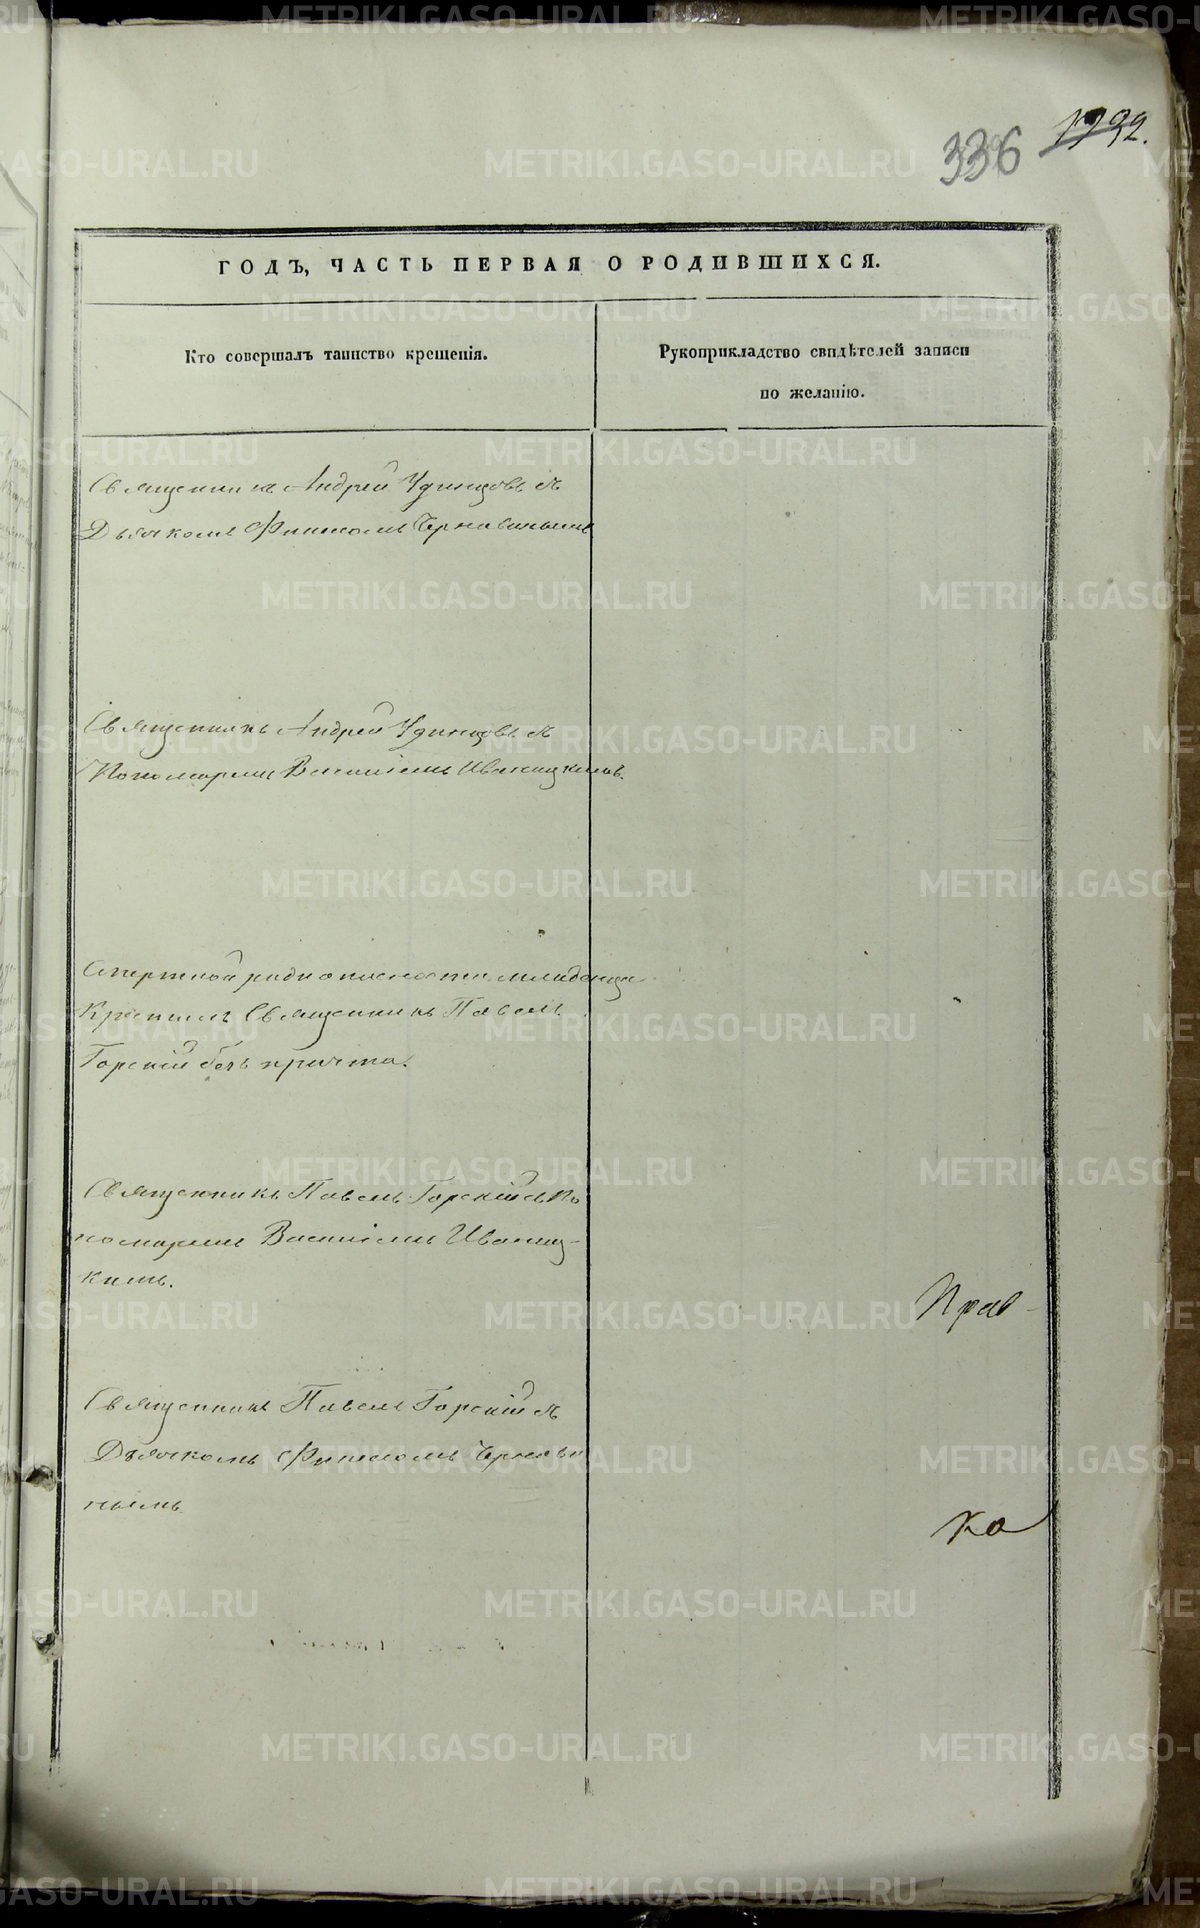 336
ГОДЪ, ЧАСТЬ ПЕРВАЯ О РОДИВШИХСЯ.
Кто совершалъ таинство крещенія.
Рукоприкладство свидѣтелей записи
по желанію.
Священникъ Андрей Удинцовъ съ
Дьячкомъ Финесомъ Чернавинымъ
Священникъ Андрей Удинцовъ съ
Пономаремъ Василіемъ Иваницкимъ.
Смертной ради опасности младенца
Крестилъ Священникъ Павелъ
Горскій безъ причта.
Священникъ Павелъ Горскій съ По
номаремъ Василіемъ Иваниц-
кимъ.
Прав-
Священникъ Павелъ Горскій съ
Дьячкомъ Финесомъ Чернави
нымъ
ко
METRIKI.GASO-URAL.RU